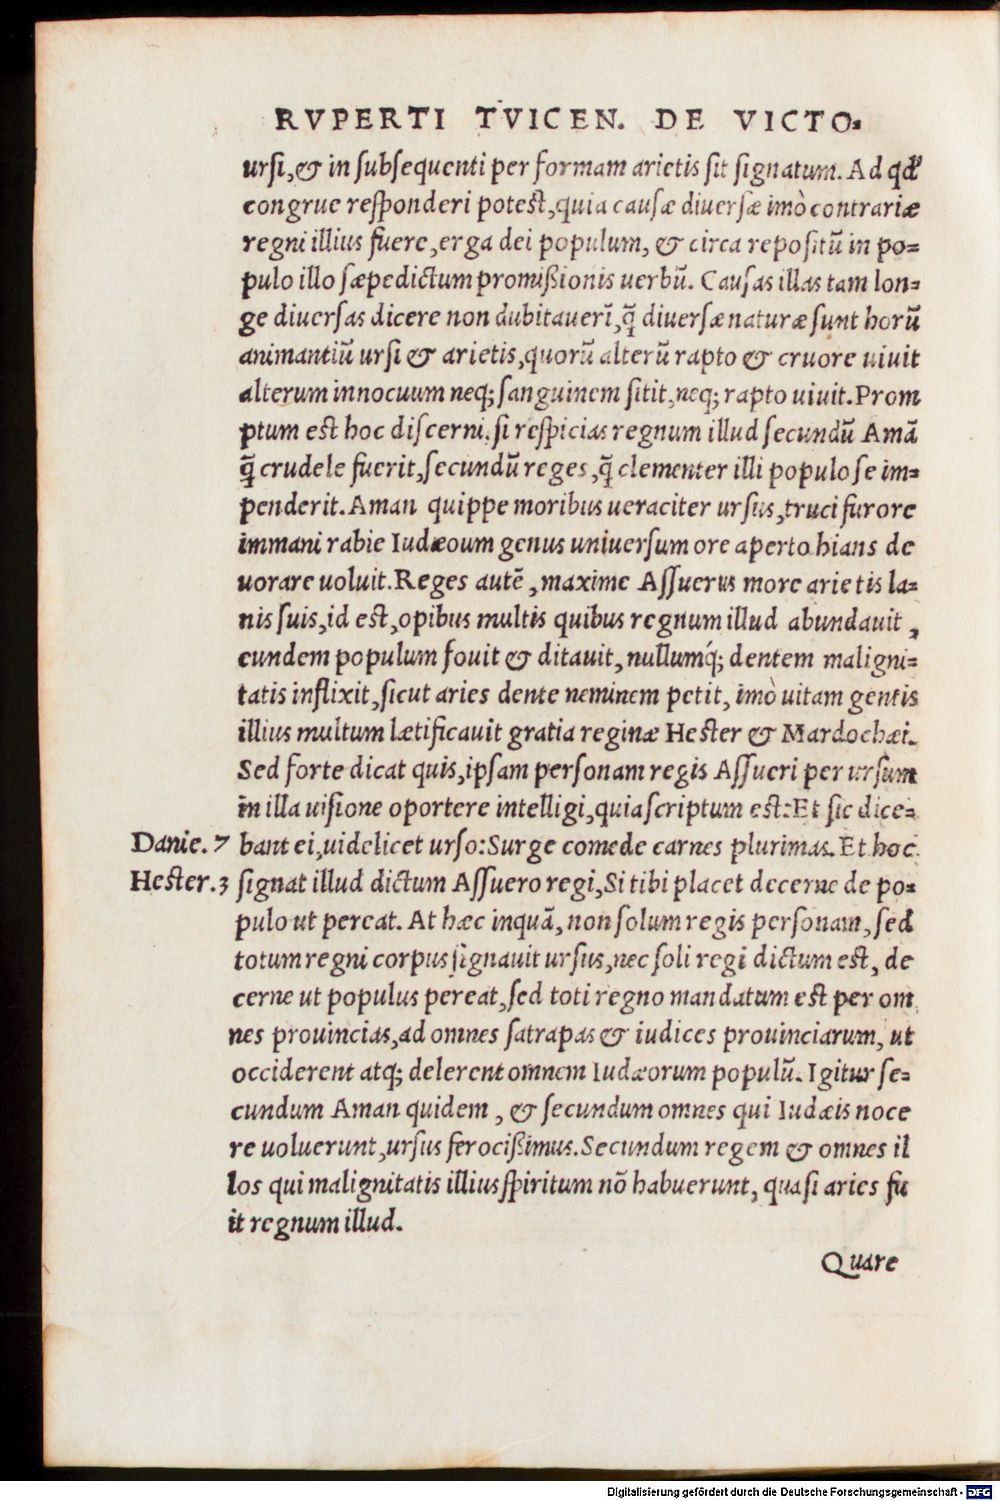 RVPERTI TVICEN. DE VICTO-
ursi, & in subsequenti per formam arietis sit signatum. Ad qđ
congrue responderi potest, quia causæ diuersæ imò contrariæ
regni illius fuere, erga dei populum, & circa repositū in po=
pulo illo sæpe dictum promißionis uerbū. Causas illas tam lon=
ge diuersas dicere non dubitauerī, q̄ diuersæ naturæ sunt horū
animantiū ursi & arietis, quorū alterū rapto & cruore uiuit
alterum innocuum neq; sanguinem sitit, neq; rapto uiuit. Prom
ptum est hoc discerni, si respicias regnum illud secundū Amā
q̄ crudele fuerit, secundū reges, q̄ clementer illi populo se im=
penderit. Aman quippe moribus ueraciter ursus, truci furore
immani rabie Iudæoum genus uniuersum ore aperto hians de
uorare uoluit. Reges autē, maxime Assuerus more arietis la=
nis suis, id est, opibus multis quibus regnum illud abundauit,
eundem populum fouit & ditauit, nullumq́; dentem maligni=
tatis inflixit, sicut aries dente neminem petit, imò uitam gentis
illius multum lætificauit gratia reginæ Hester & Mardochæi.
Sed forte dicat quis, ipsam personam regis Assueri per ursum
in illa uisione oportere intelligi, quia scriptum est: Et sic dice=
Danie. 7 bant ei, uidelicet urso: Surge comede carnes plurimas. Et hoc
Hester. 3 signat illud dictum Assuero regi, Si tibi placet decerne de po=
pulo ut pereat. At hæc inquā, non solum regis personam, sed
totum regni corpus signauit ursus, nec soli regi dictum est, de
cerne ut populus pereat, sed toti regno mandatum est per om
nes prouincias, ad omnes satrapas & iudices prouinciarum, ut
occiderent atq; delerent omnem Iudæorum populū. Igitur se=
cundum Aman quidem, & secundum omnes qui Iudæis noce
re uoluerunt, ursus ferocißimus. Secundum regem & omnes il
los qui malignitatis illius spiritum nō habuerunt, quasi aries fu
it regnum illud.
Quare
Digitalisierung gefördert durch die Deutsche Forschungsgemeinschaft - DFG